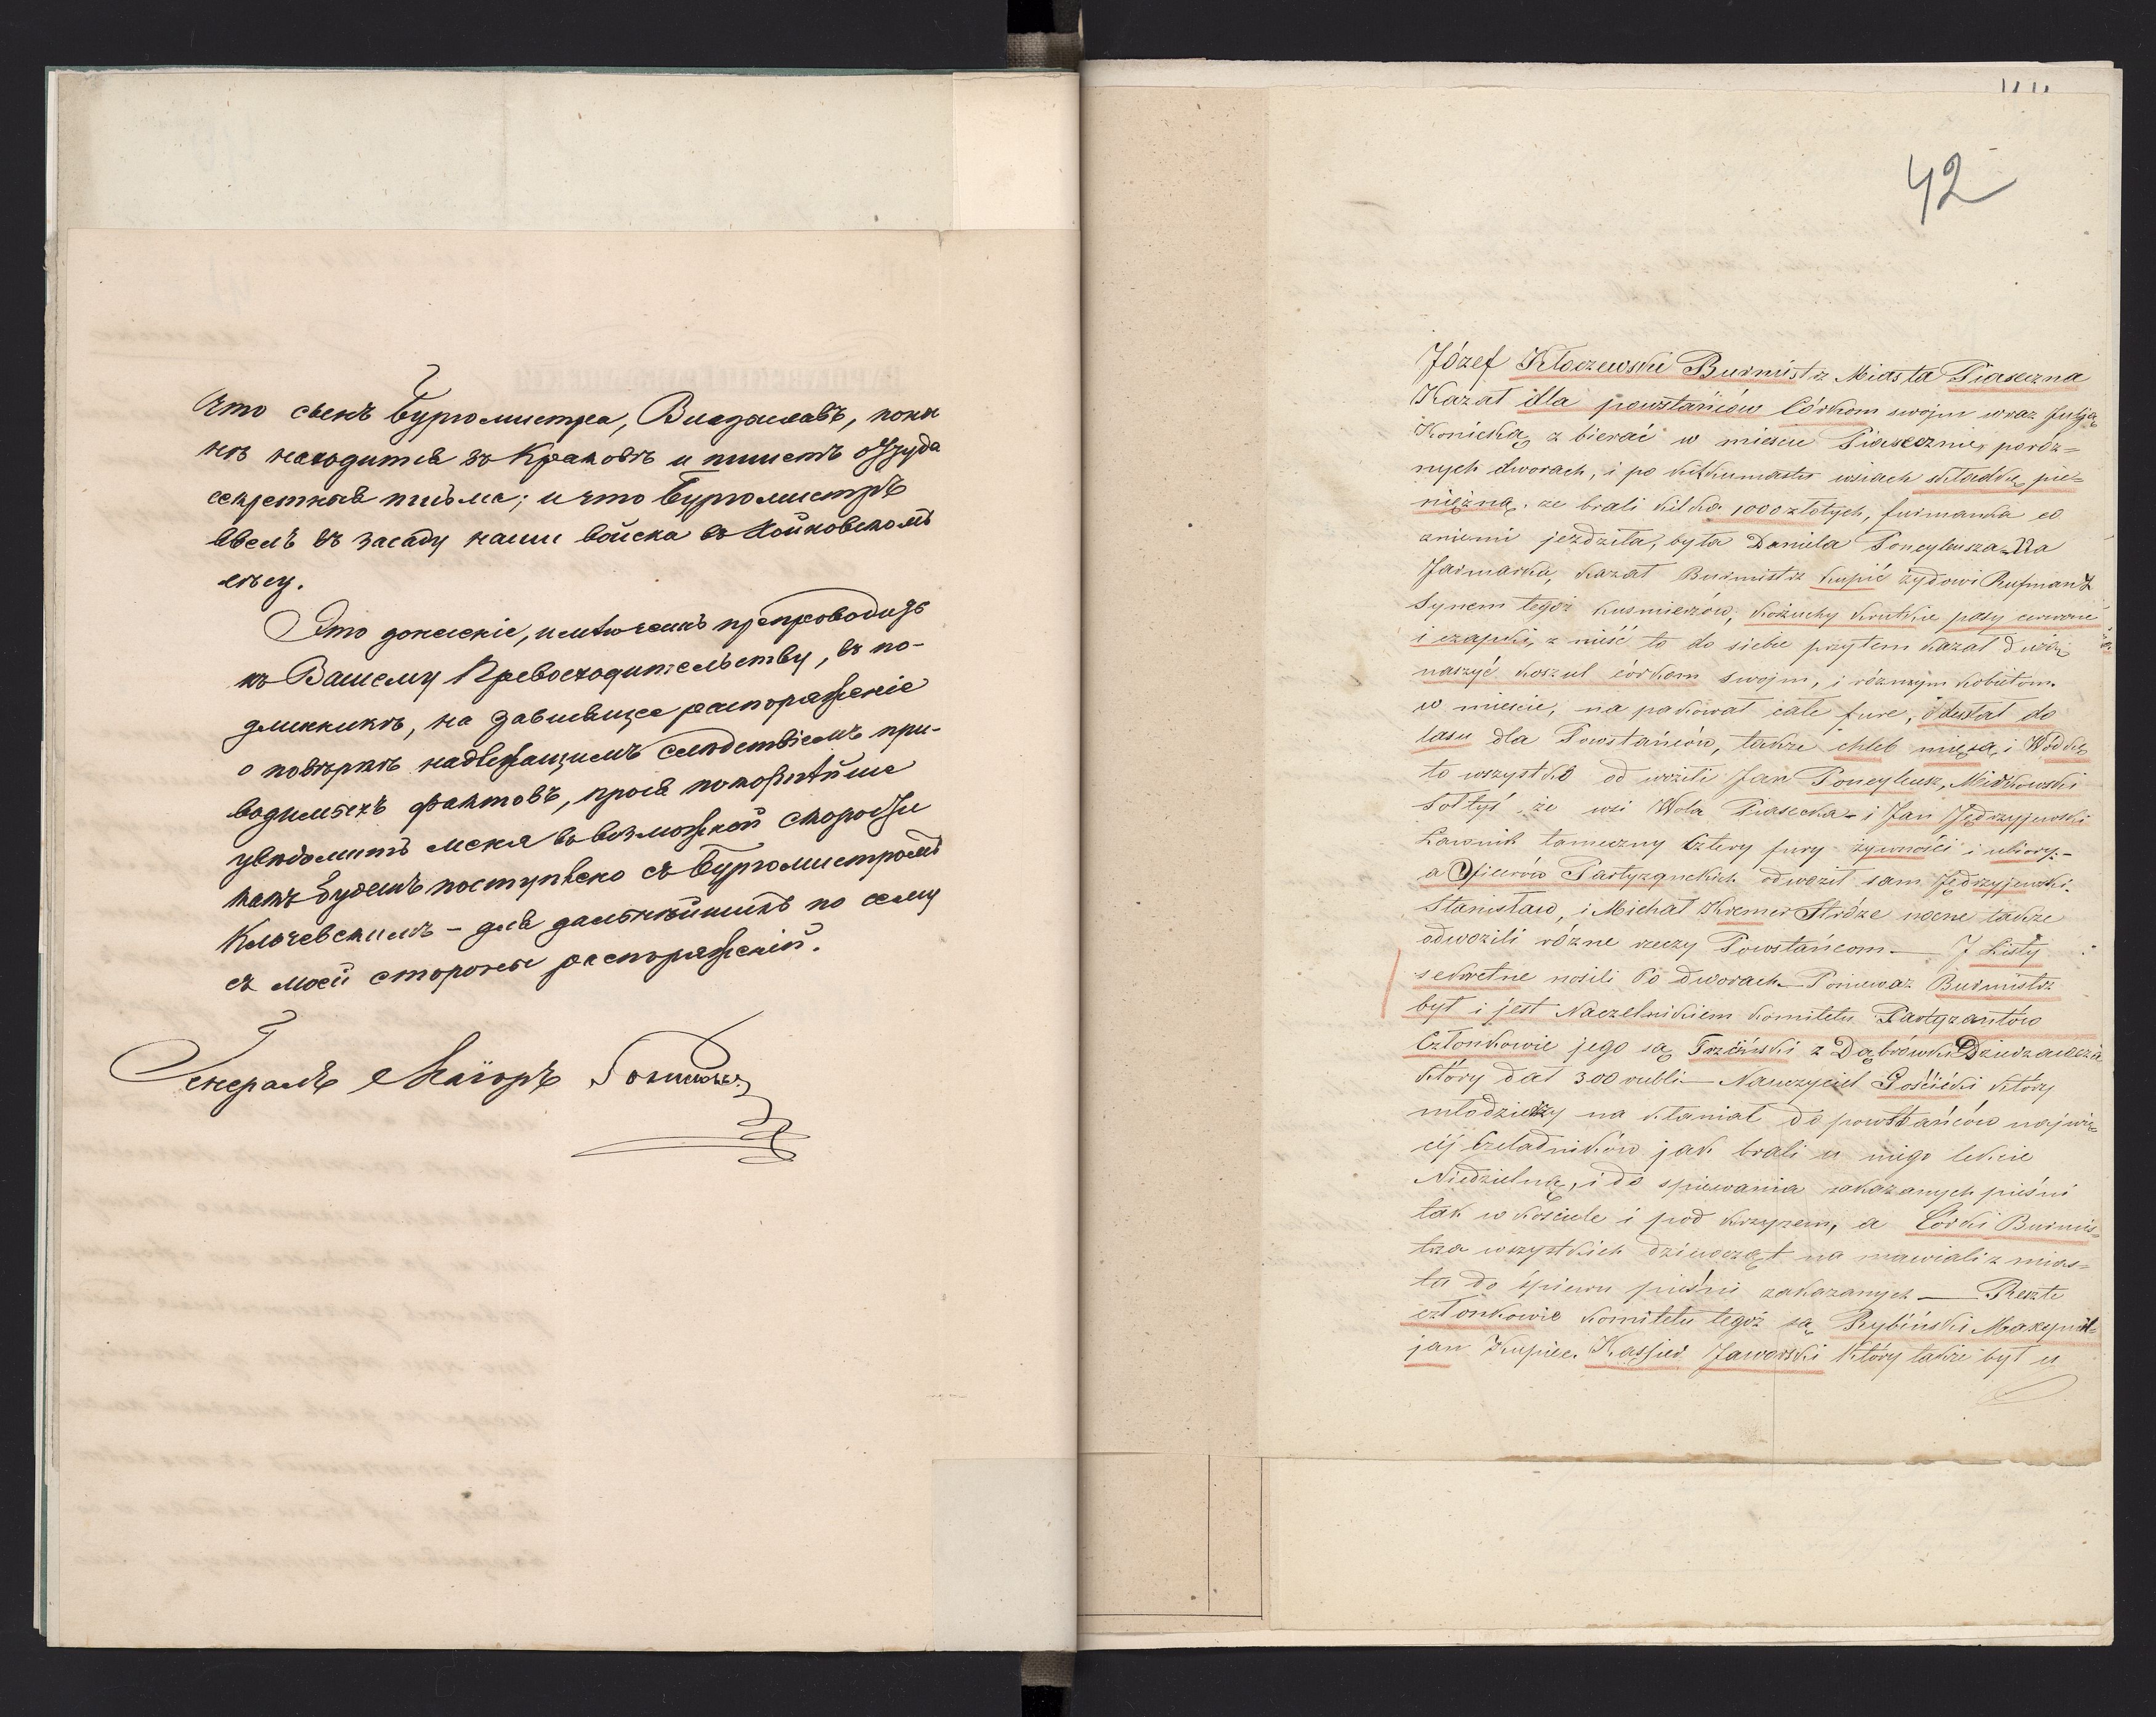 что сынъ Бургомистра, Владиславъ, ноны
нѣ находится въ Краковѣ и пишетъ оттуда
секретныя письма; и что Бургомистръ
ввелъ въ засаду наши войска въ Хойновскомъ
лѣсу.
Это донесеніе, имѣю честь препроводить
къ Вашему Превосходительству, въ по-
длинникѣ, на зависящее распоряженіе
о повѣркѣ надлежащимъ слѣдствіемъ при-
водимыхъ фактовъ, прося покорнѣйше
увѣдомить меня въ возможной скорости
какъ будетъ поступлено съ Бургомистромъ
Клочевскимъ – для дальнѣйшихъ по сему
съ моей стороны распоряженій.
Генералъ Маіоръ
42
Józef Kłoczewski Burmistz Miasta Piaseczna
Kazał dla powstańców Córkom swojm wraz Julją
Konicką z bierać w miescie Piasecznie, poróż=
nych dworach, i po kilkunastu wsiach składkę pie=
niężną. ze brali kilka 1000 złotych, furmanka co
zniemi jezdziła, była Daniela Poncyleusza. Na
Jarmarku, kazał Burmistrz kupić żydowi Rufman Z
Synem tegoż kusmierzów, kożuchy krutkie pasy czerwone
i czapki, z nieść to do siebie przytem kazał dużo
naszyć koszul córkom swojm, i róznym kobietom.
w mieście, na pakował całe fure, odesłał do
lasu dla Powstańców, także chleb mięsa i Wódkę
to wszystko od wozili Jan Poncyleusz, Miżkowski
Sołtyś ze wsi Wola Piasecka i Jan Jędrzyjewski
Ławnik tameczny Cztery fury zywności i ubiory. –
a Oficerów Partyzanckich odwoził sam Jędrzyjewski.
Stanisław, i Michał Kremer Stróże nocne także
odwozili rózne rzeczy Powstańcom — J Listy
sekretne nosili Po dworach – Poniewaz Burmistrz
był i jest Naczelnikiem komitetu Partyzantów
Członkowie jego są Trzciński z Dąbrówki Dzierzawca
który dał 300 rubli — Nauczyciel Gościcki który
młodziezy na kłaniał do powstańców najwię=
cej Czeladników jak brali u niego lekcie
Niedzielne, i do spiewania zakazanych pieśni
tak w kościele i pod krzyzem, a Córki Burmis=
trza wszystkich dziewcząt na mawiali z mias=
ta do śpiewu pieśni zakazanych — Reszte
członkowie komitetu tegoż są Rybiński Maxymil=
jan Kupiec. Kassjer Jaworski który także był u